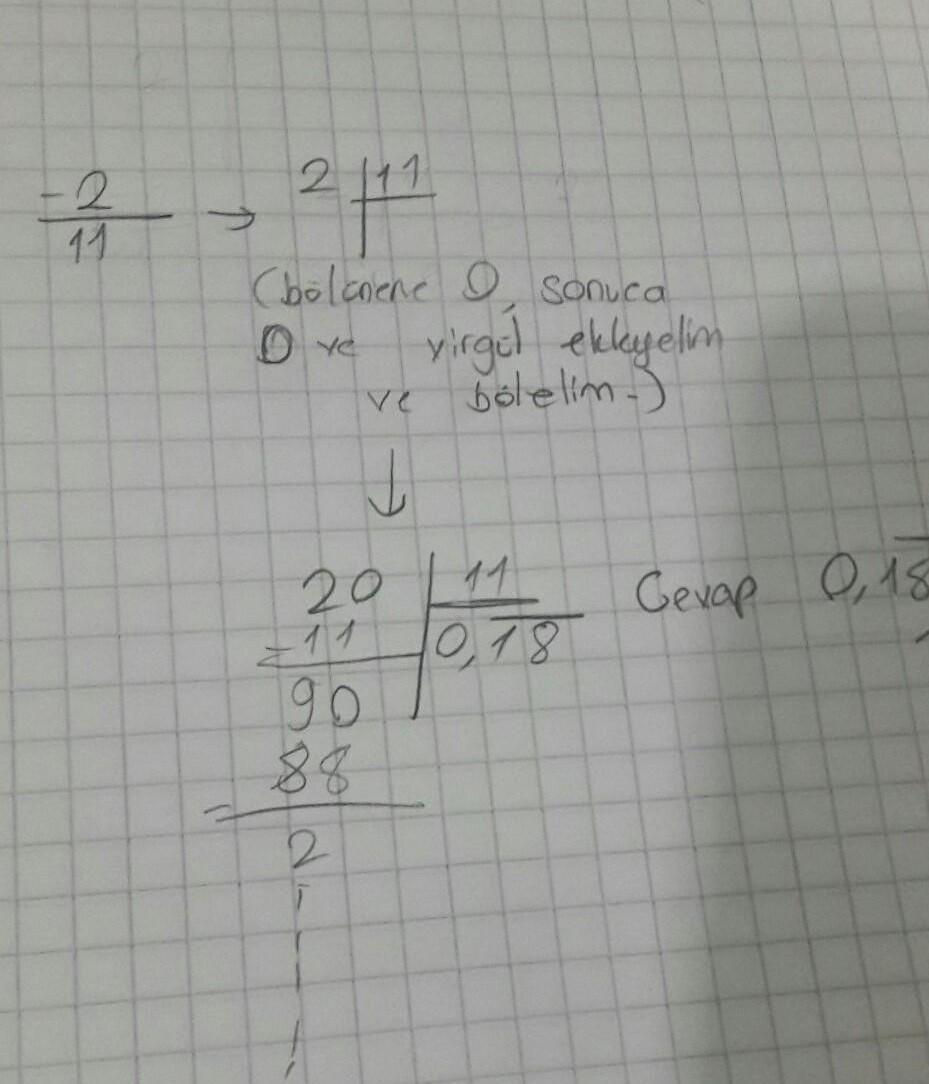 -2 → 2 | 11
11
(bölünene 0, sonuca
0 ve virgül ekleyelim
ve bölelim.)
↓
20 | 11 Cevap 0,18
-11 | 0,18
90
88
2